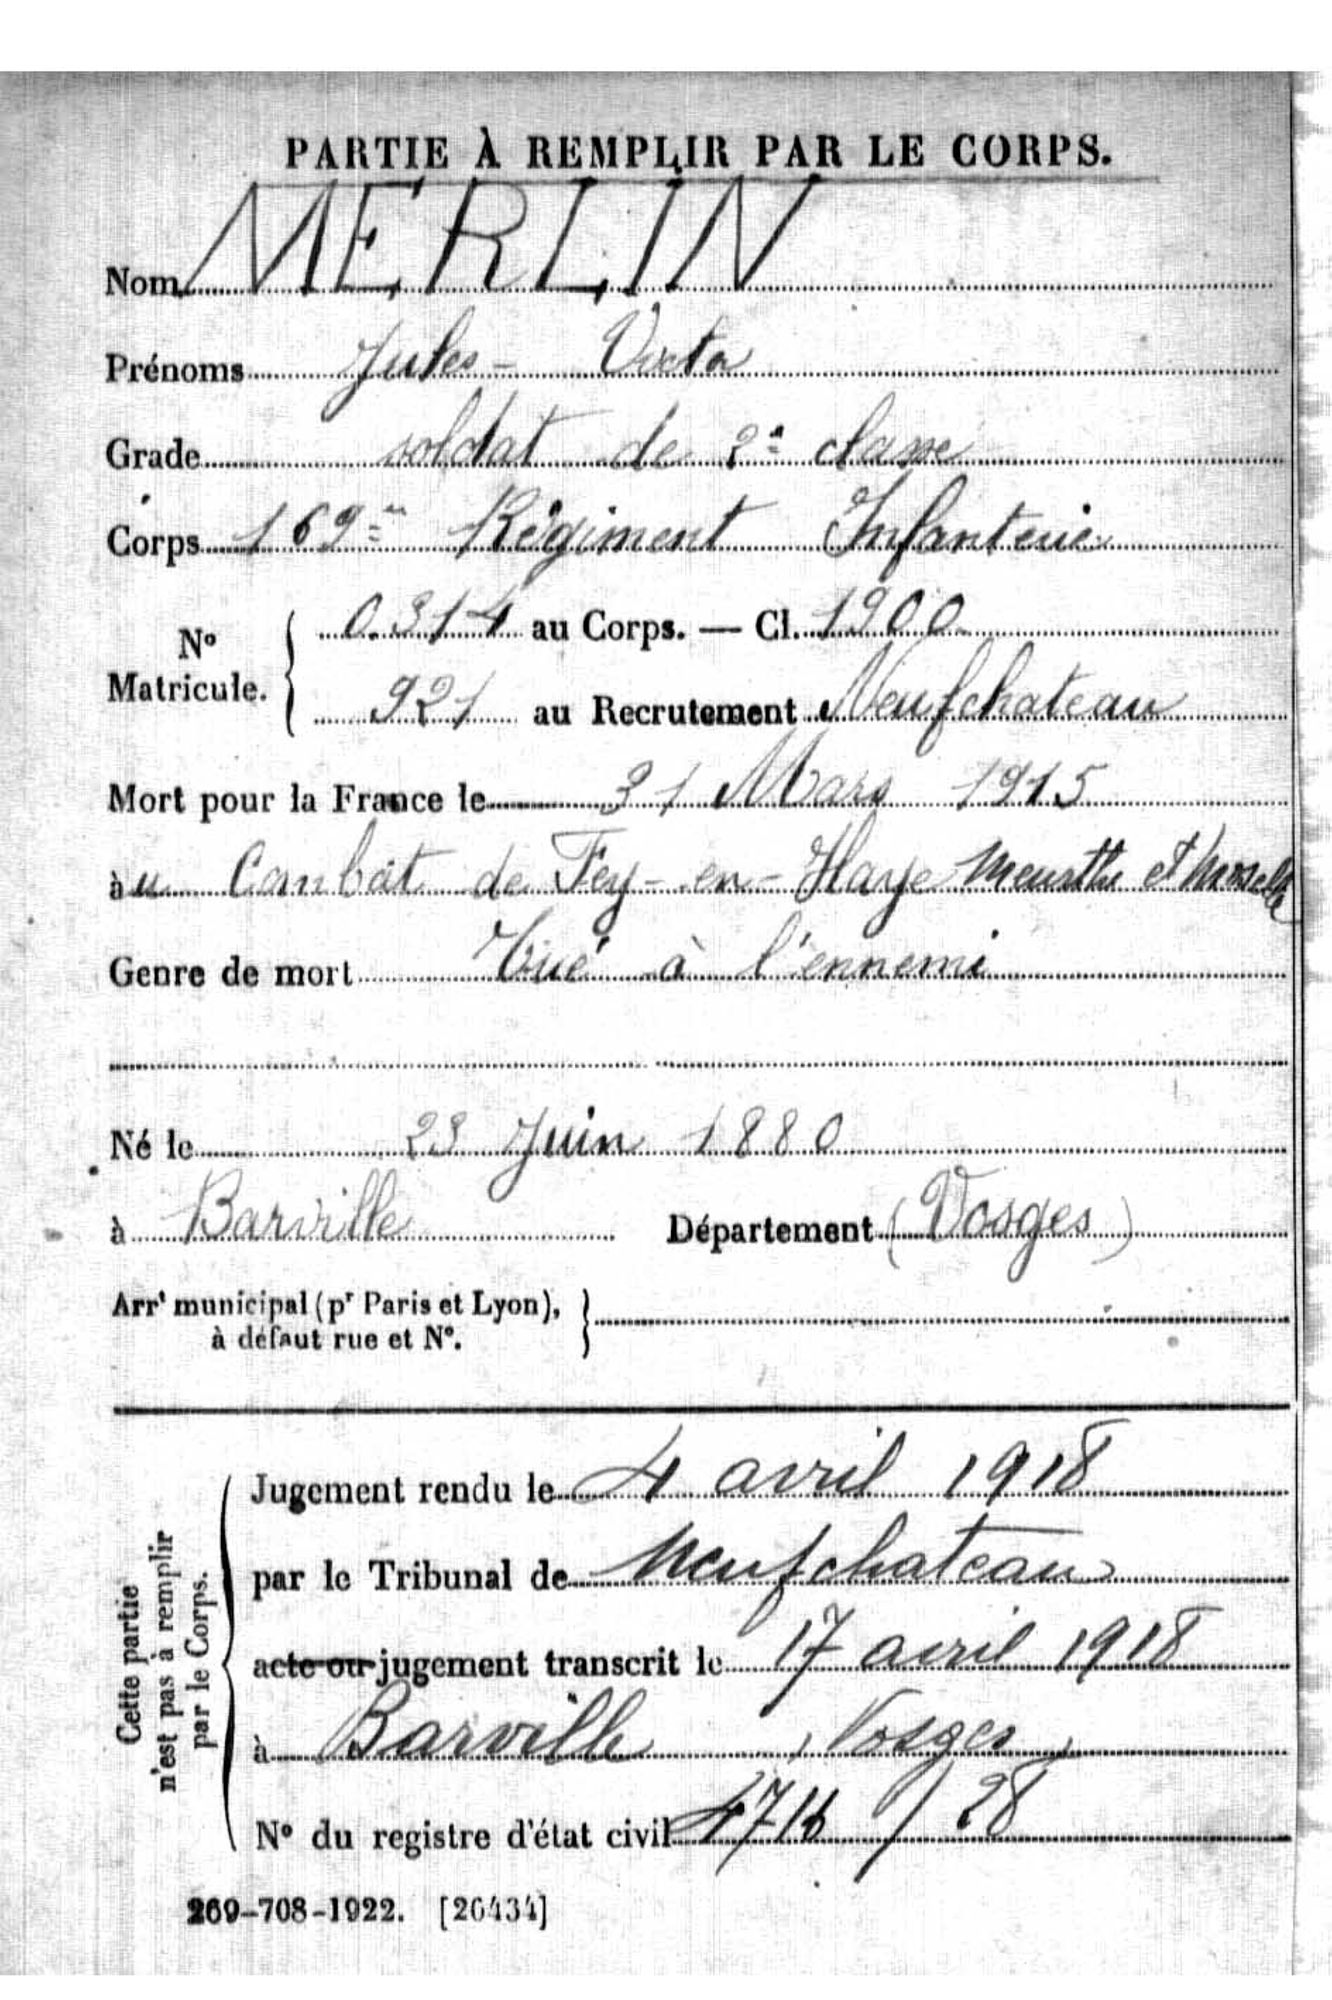 PARTIE À REMPLIR PAR LE CORPS.
Nom MERLIN
Prénoms Jules - Victor
Grade soldat de 2e classe
Corps 169me Régiment Infanterie
N° Matricule. { 0.314 au Corps. — Cl. 1900
921 au Recrutement Neufchateau
Mort pour la France le 31 Mars 1915
au Combat de Fey-en-Haye Meurthe et Moselle
Genre de mort Tué à l'ennemi
Né le 23 Juin 1880
à Barville Département (Vosges)
Arrt municipal (pr Paris et Lyon), }
à défaut rue et N°.
Cette partie
n'est pas à remplir
par le Corps.
Jugement rendu le 4 avril 1918
par le Tribunal de Neufchateau
acte ou jugement transcrit le 17 avril 1918
à Barville, Vosges
N° du registre d'état civil / 28
269-708-1922. [26434]